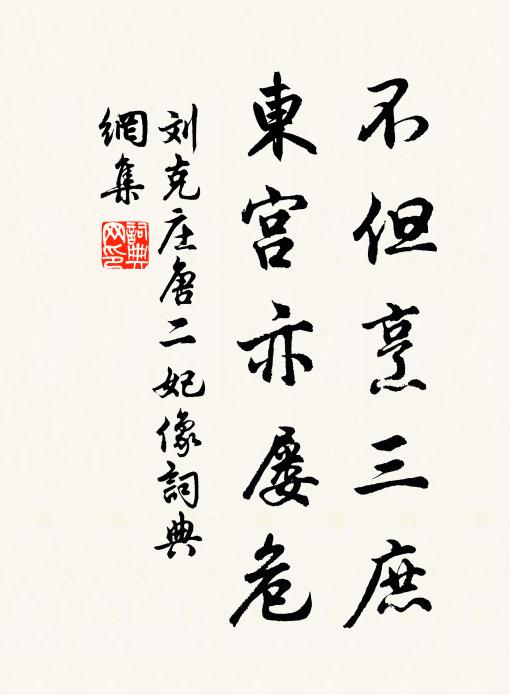 不但烹三庶
東宮亦屡危
刘克庄唐二妃像詞典
網集
詞典
网印